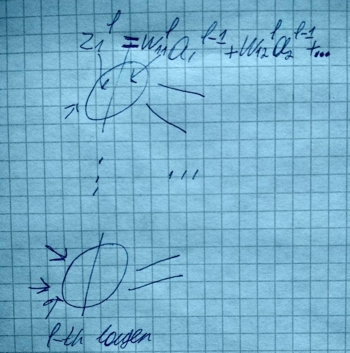 z₁ˡ = w₁₁ˡ a₁ˡ⁻¹ + w₁₂ˡ a₂ˡ⁻¹ + ...
...
l-th layer